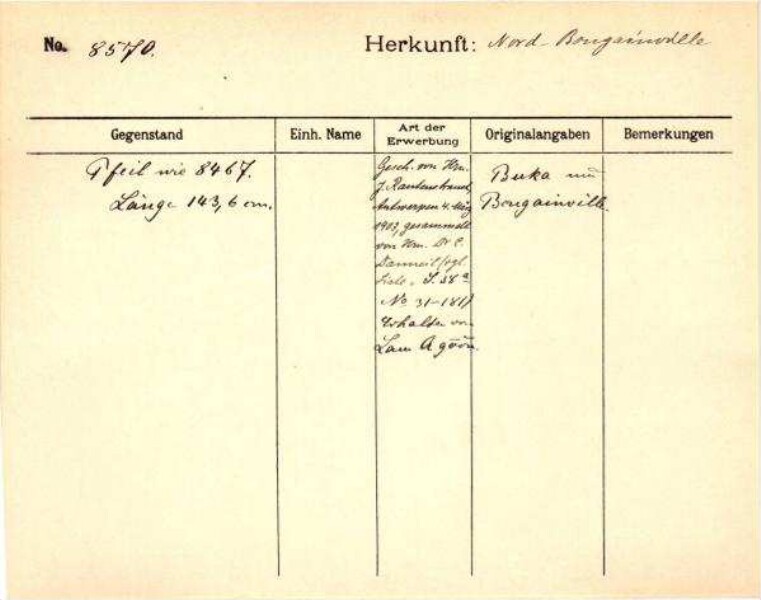 No. 8570. Herkunft: Nord-Bougainville
Gegenstand Einh. Name Art der Erwerbung Originalangaben Bemerkungen
Pfeil wie 8467.
Länge 143,6 cm.
Gesch. von Hrn.
J. Rautenstrauch
Antwerpen 4. März
1903, gesammelt
von Hrn. Dr C.
Danneil (vgl.
S. 58a
No 31-181)
Erhalten von
Lau
Buka und
Bougainville.